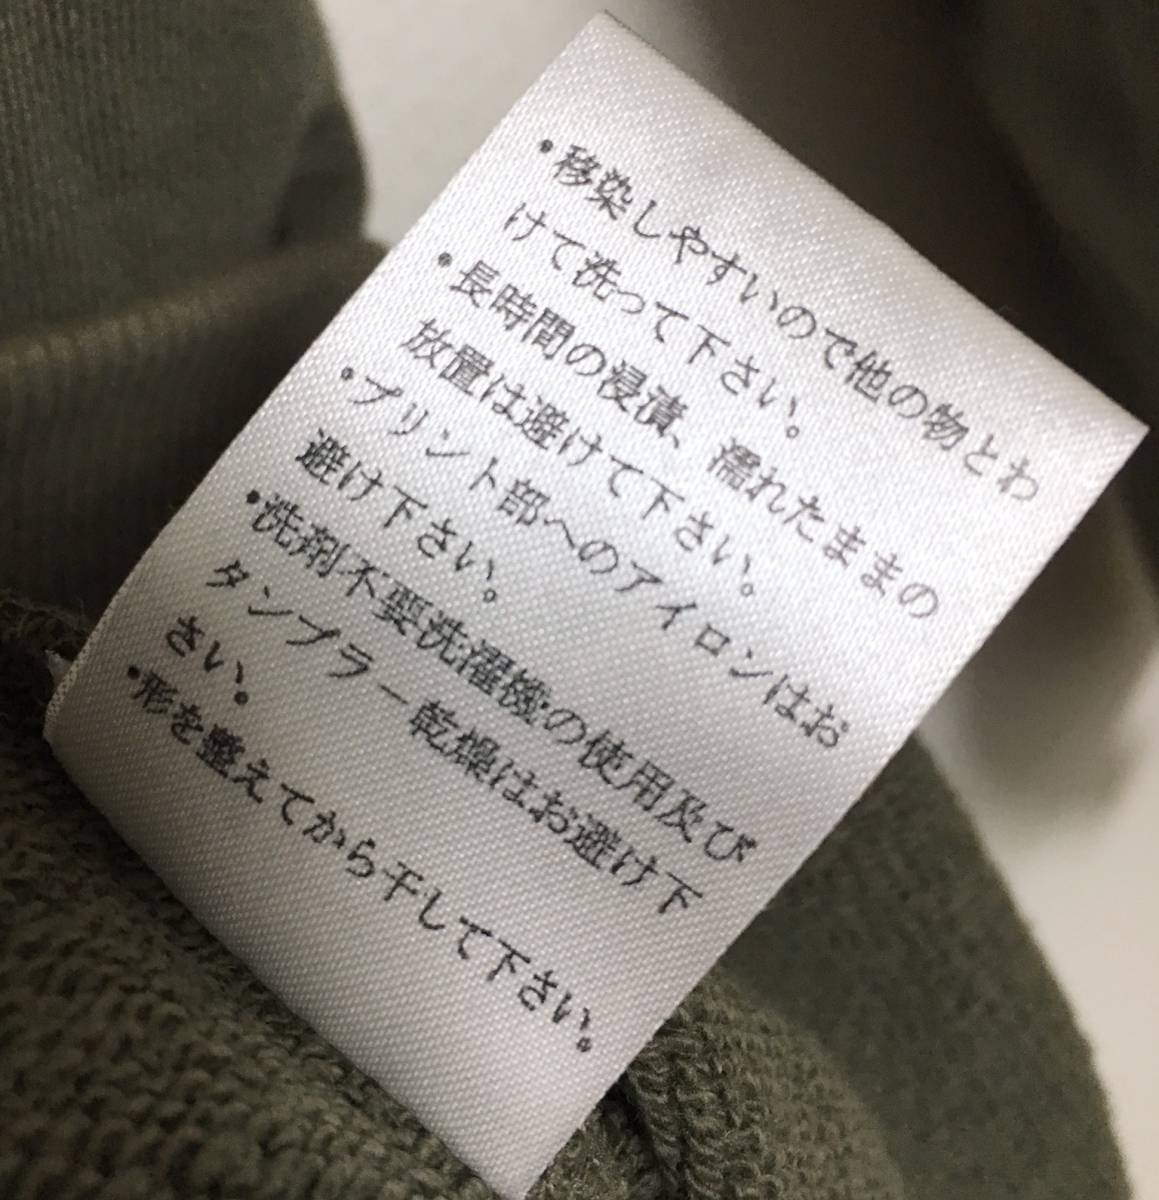 ・移染しやすいので他の物とわ
けて洗って下さい。
・長時間の浸漬、濡れたままの
放置は避けて下さい。
・プリント部へのアイロンはお
避け下さい。
・洗剤不要洗濯機の使用及び
タンブラー乾燥はお避け下
さい。
・形を整えてから干して下さい。